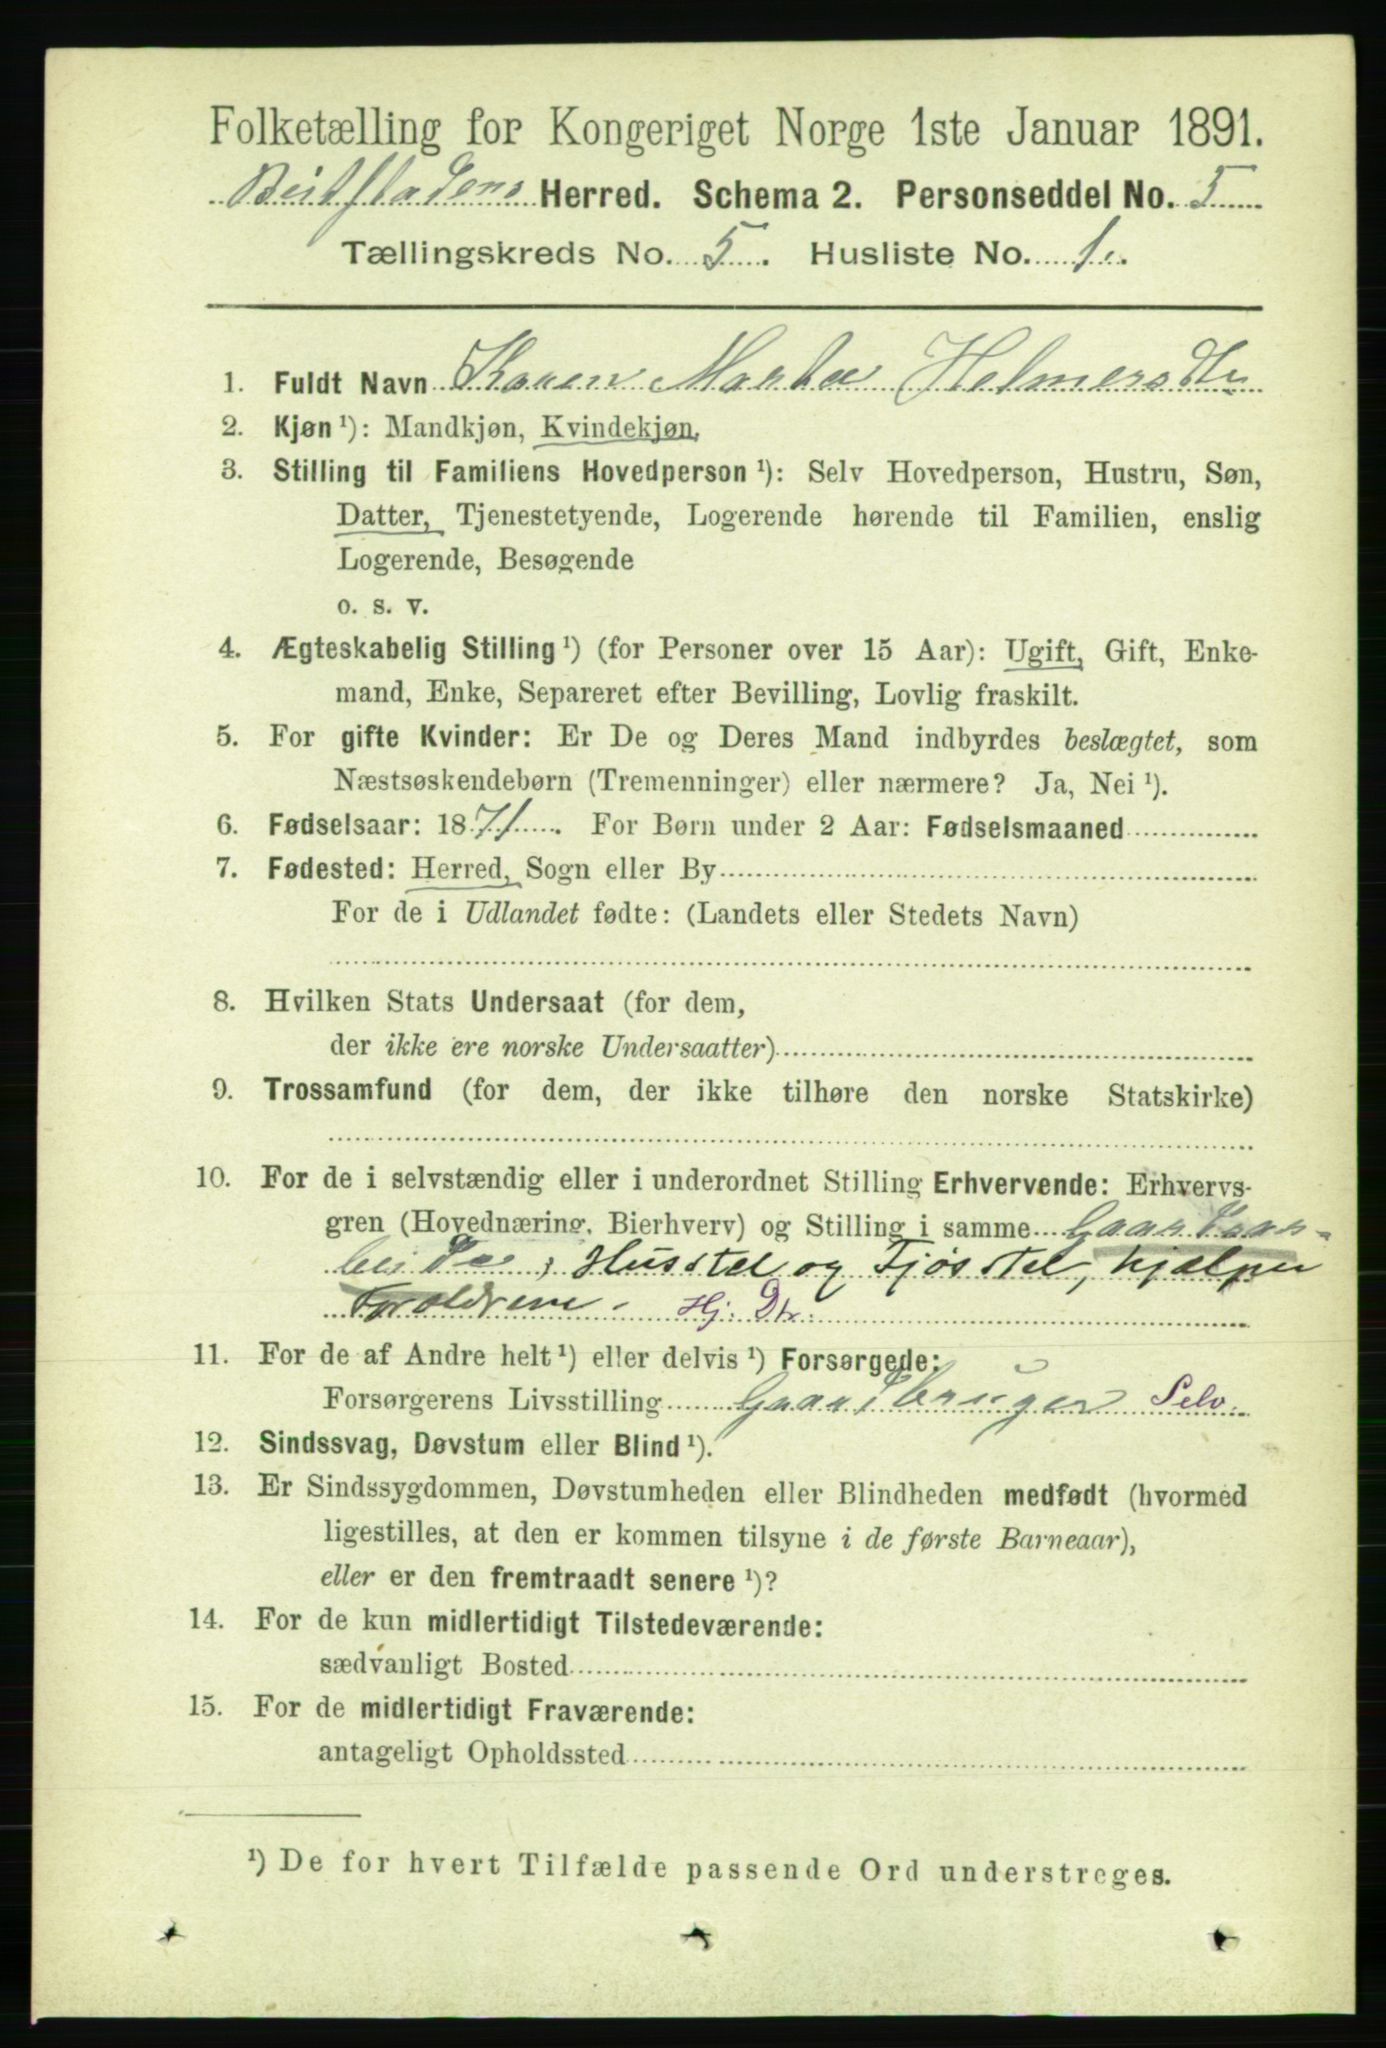 Folketælling for Kongeriget Norge 1ste Januar 1891.
Beitstadens Herred. Schema 2. Personseddel No. 5
Tællingskreds No. 5. Husliste No. 1.
1. Fuldt Navn Karen Marta Helmersdtr
2. Kjøn ¹): Mandkjøn, Kvindekjøn.
3. Stilling til Familiens Hovedperson ¹): Selv Hovedperson, Hustru, Søn,
Datter, Tjenestetyende, Logerende hørende til Familien, enslig
Logerende, Besøgende
o. s. v.
4. Ægteskabelig Stilling ¹) (for Personer over 15 Aar): Ugift, Gift, Enke-
mand, Enke, Separeret efter Bevilling, Lovlig fraskilt.
5. For gifte Kvinder: Er De og Deres Mand indbyrdes beslægtet, som
Næstsøskendebørn (Tremenninger) eller nærmere? Ja, Nei ¹).
6. Fødselsaar: 1871. For Børn under 2 Aar: Fødselsmaaned
7. Fødested: Herred, Sogn eller By
For de i Udlandet fødte: (Landets eller Stedets Navn)
8. Hvilken Stats Undersaat (for dem,
der ikke ere norske Undersaatter)
9. Trossamfund (for dem, der ikke tilhøre den norske Statskirke)
10. For de i selvstændig eller i underordnet Stilling Erhvervende: Erhvervs-
gren (Hovednæring, Bierhverv) og Stilling i samme Gaardsar-
beide, Husstel og Fjøsstel, hjælper
Forældrene. Hj. Dtr.
11. For de af Andre helt ¹) eller delvis ¹) Forsørgede:
Forsørgerens Livsstilling Gaardbruger Selv.
12. Sindssvag, Døvstum eller Blind ¹).
13. Er Sindssygdommen, Døvstumheden eller Blindheden medfødt (hvormed
ligestilles, at den er kommen tilsyne i de første Barneaar),
eller er den fremtraadt senere ¹)?
14. For de kun midlertidigt Tilstedeværende:
sædvanligt Bosted
15. For de midlertidigt Fraværende:
antageligt Opholdssted
¹) De for hvert Tilfælde passende Ord understreges.